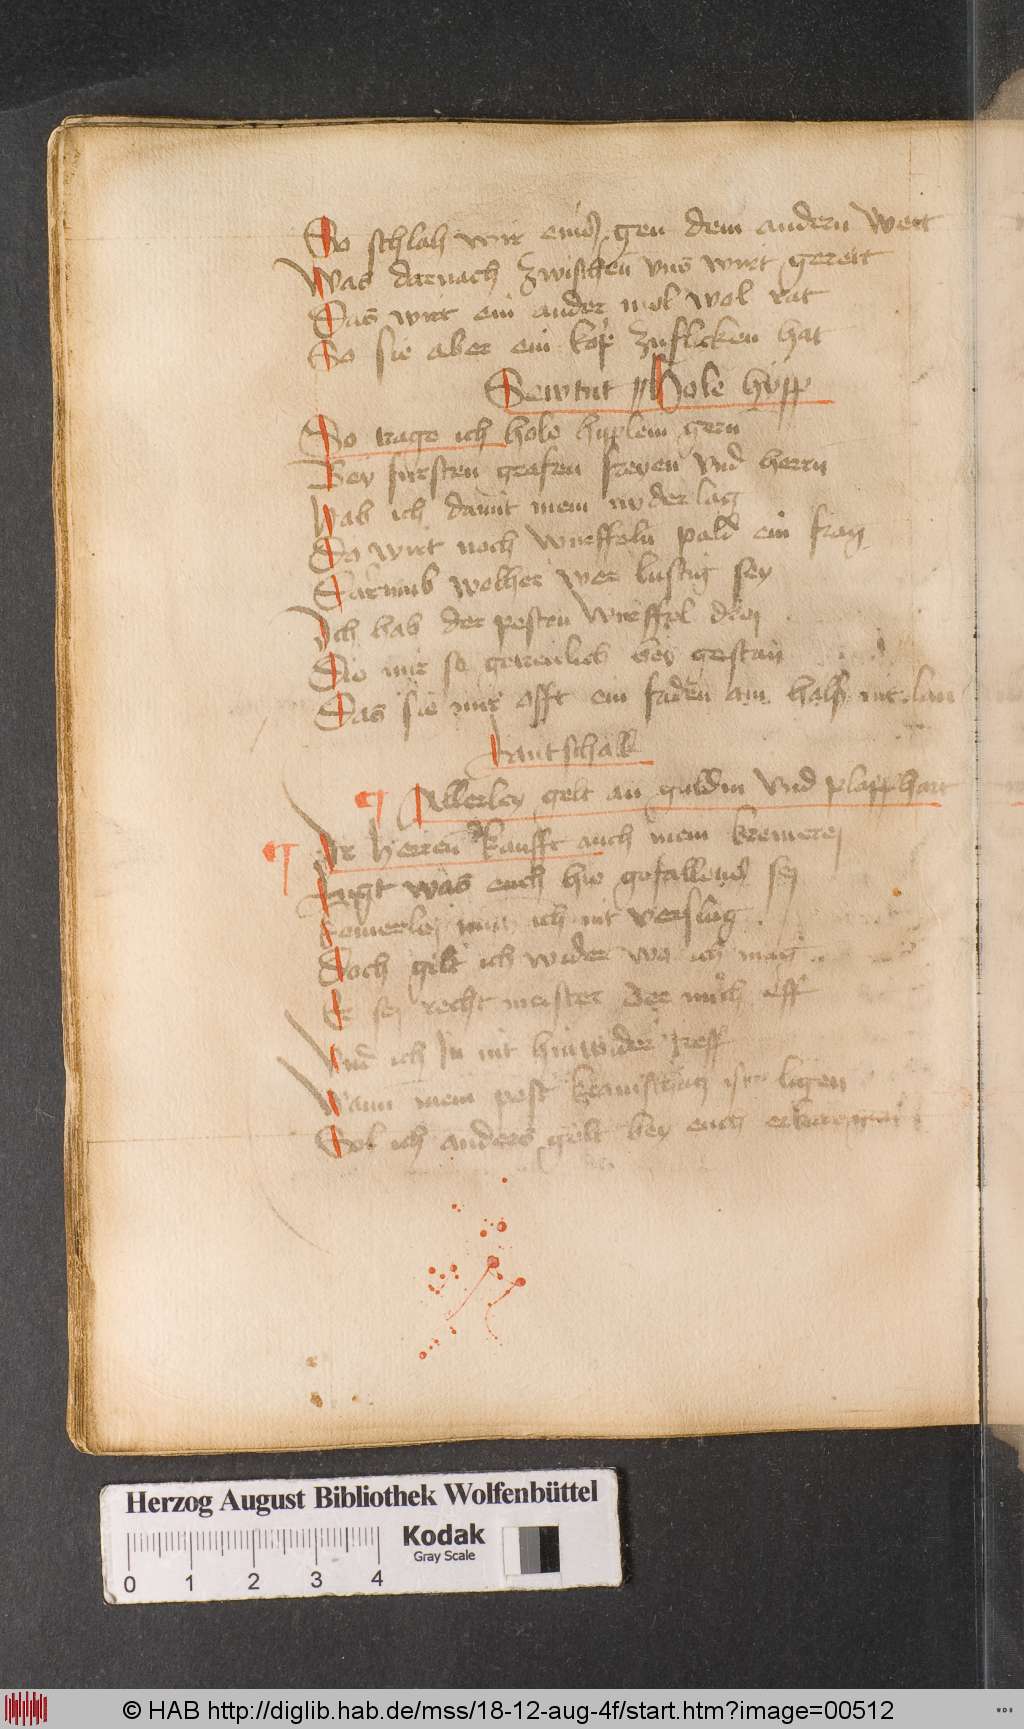 So schlah wir einß gen dem andern wert
Was darnach zwischen vns wirt gereit
Das wirt ein ander mol wol rat
So sie aber ein kopf zuflicken hat
Hole hypp
So trage ich hole hyplein gern
Bey fursten grafen freyen vnd herrn
Hab ich damit mein niderlag
Do wirt noch wurffeln pald ein frag
Darumb welher wer lustig sey
Ich hab der pesten wurffel drei
Die mir so getreulich bey gestan
Das sie mir offt ein faden am halß nit lan
Lantschalk
Allerley gelt an guldin vnd plapphart
Ir herren kaufft auch mein kremerei
Lugt was euch hie gefallens sei
keinerlei muntz ich nit verslug
Doch gilt ich wider wo ich mag
Er sei recht meister der mich eff
Vnd ich In nit hinwider treff
Wann mein post ist ligen
Sol ich anders gelt bey euch
Herzog August Bibliothek Wolfenbüttel
Kodak
Gray Scale
0 1 2 3 4
© HAB http://diglib.hab.de/mss/18-12-aug-4f/start.htm?image=00512